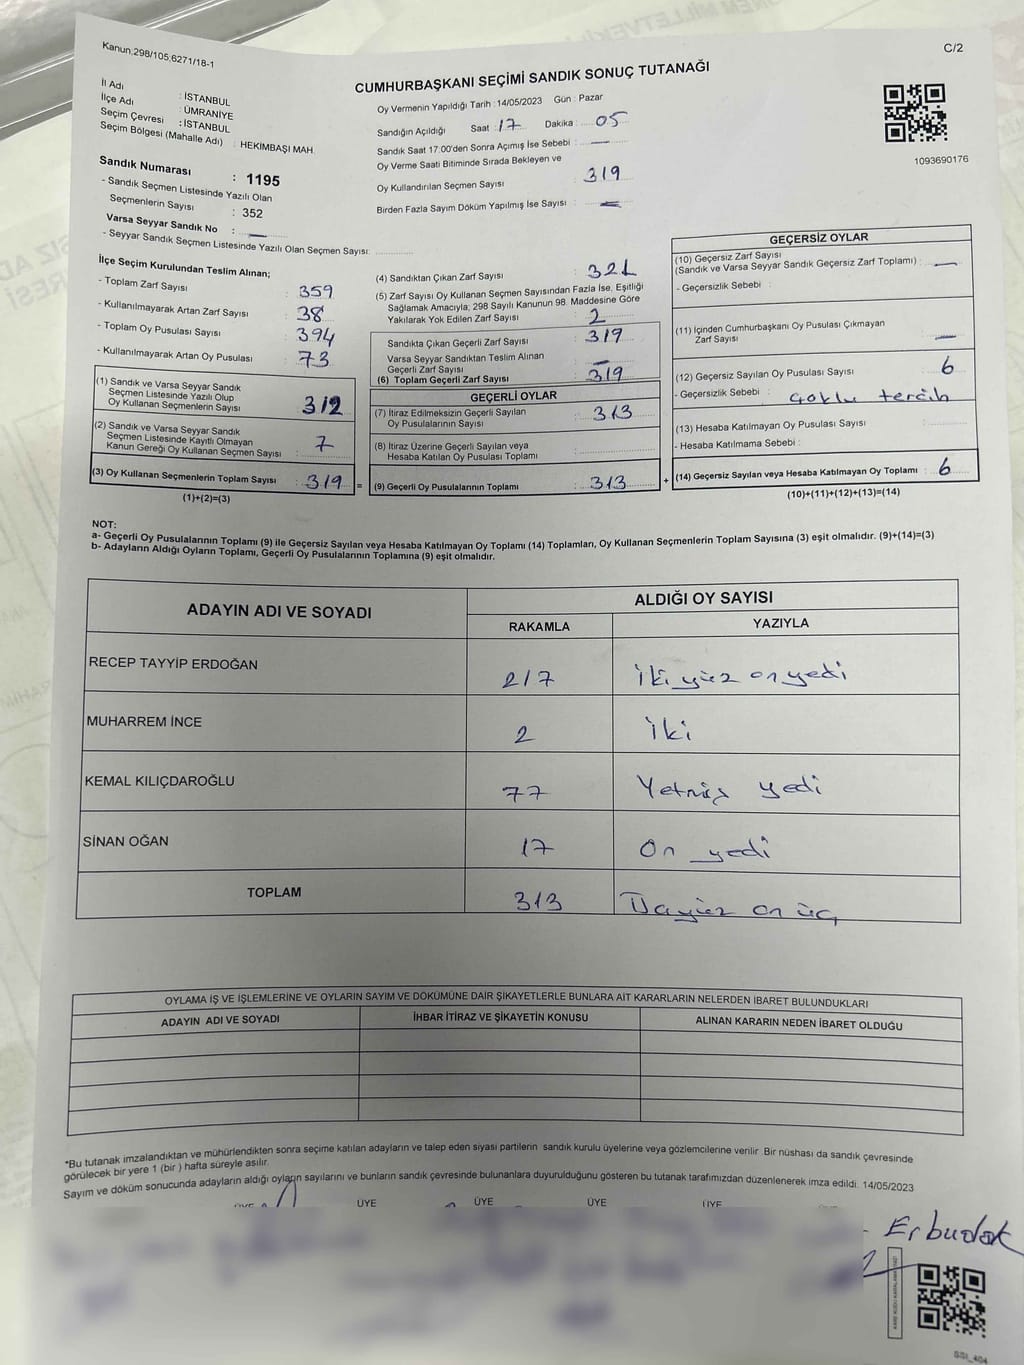 Kanun,298/105,6271/18-1
C/2
CUMHURBAŞKANI SEÇİMİ SANDIK SONUÇ TUTANAĞI
İl Adı : İSTANBUL
İlçe Adı : ÜMRANİYE
Seçim Çevresi : İSTANBUL
Seçim Bölgesi (Mahalle Adı) : HEKİMBAŞI MAH.
Sandık Numarası : 1195
- Sandık Seçmen Listesinde Yazılı Olan
Seçmenlerin Sayısı : 352
Varsa Seyyar Sandık No : —
- Seyyar Sandık Seçmen Listesinde Yazılı Olan Seçmen Sayısı: ............
Oy Vermenin Yapıldığı Tarih : 14/05/2023 Gün : Pazar
Sandığın Açıldığı Saat : 17 Dakika : 05
Sandık Saat 17:00'den Sonra Açımış İse Sebebi : —
Oy Verme Saati Bitiminde Sırada Bekleyen ve
Oy Kullandırılan Seçmen Sayısı : 319
Birden Fazla Sayım Döküm Yapılmış İse Sayısı : —
1093690176
İlçe Seçim Kurulundan Teslim Alınan;
- Toplam Zarf Sayısı : 359
- Kullanılmayarak Artan Zarf Sayısı : 38
- Toplam Oy Pusulası Sayısı : 394
- Kullanılmayarak Artan Oy Pusulası : 73
(1) Sandık ve Varsa Seyyar Sandık
Seçmen Listesinde Yazılı Olup
Oy Kullanan Seçmenlerin Sayısı : 312
(2) Sandık ve Varsa Seyyar Sandık
Seçmen Listesinde Kayıtlı Olmayan
Kanun Gereği Oy Kullanan Seçmen Sayısı : 7
(3) Oy Kullanan Seçmenlerin Toplam Sayısı : 319 =
(1)+(2)=(3)
(4) Sandıktan Çıkan Zarf Sayısı : 321
(5) Zarf Sayısı Oy Kullanan Seçmen Sayısından Fazla İse, Eşitliği
Sağlamak Amacıyla, 298 Sayılı Kanunun 98. Maddesine Göre
Yakılarak Yok Edilen Zarf Sayısı : 2
Sandıkta Çıkan Geçerli Zarf Sayısı : 319
Varsa Seyyar Sandıktan Teslim Alınan
Geçerli Zarf Sayısı : —
(6) Toplam Geçerli Zarf Sayısı : 319
GEÇERLİ OYLAR
(7) İtiraz Edilmeksizin Geçerli Sayılan
Oy Pusulalarının Sayısı : 313
(8) İtiraz Üzerine Geçerli Sayılan veya
Hesaba Katılan Oy Pusulası Toplamı : ............
(9) Geçerli Oy Pusulalarının Toplamı : 313 +
GEÇERSİZ OYLAR
(10) Geçersiz Zarf Sayısı
(Sandık ve Varsa Seyyar Sandık Geçersiz Zarf Toplamı) : —
- Geçersizlik Sebebi :
(11) İçinden Cumhurbaşkanı Oy Pusulası Çıkmayan
Zarf Sayısı : —
(12) Geçersiz Sayılan Oy Pusulası Sayısı : 6
- Geçersizlik Sebebi : çoklu tercih
(13) Hesaba Katılmayan Oy Pusulası Sayısı : ............
- Hesaba Katılmama Sebebi :
(14) Geçersiz Sayılan veya Hesaba Katılmayan Oy Toplamı : 6
(10)+(11)+(12)+(13)=(14)
NOT:
a- Geçerli Oy Pusulalarının Toplamı (9) ile Geçersiz Sayılan veya Hesaba Katılmayan Oy Toplamı (14) Toplamları, Oy Kullanan Seçmenlerin Toplam Sayısına (3) eşit olmalıdır. (9)+(14)=(3)
b- Adayların Aldığı Oyların Toplamı, Geçerli Oy Pusulalarının Toplamına (9) eşit olmalıdır.
ADAYIN ADI VE SOYADI ALDIĞI OY SAYISI
RAKAMLA YAZIYLA
RECEP TAYYİP ERDOĞAN 217 İki yüz on yedi
MUHARREM İNCE 2 İki
KEMAL KILIÇDAROĞLU 77 Yetmiş yedi
SİNAN OĞAN 17 On yedi
TOPLAM 313 Üçyüz on üç
OYLAMA İŞ VE İŞLEMLERİNE VE OYLARIN SAYIM VE DÖKÜMÜNE DAİR ŞİKAYETLERLE BUNLARA AİT KARARLARIN NELERDEN İBARET BULUNDUKLARI
ADAYIN ADI VE SOYADI İHBAR İTİRAZ VE ŞİKAYETİN KONUSU ALINAN KARARIN NEDEN İBARET OLDUĞU
*Bu tutanak imzalandıktan ve mühürlendikten sonra seçime katılan adayların ve talep eden siyasi partilerin sandık kurulu üyelerine veya gözlemcilerine verilir .Bir nüshası da sandık çevresinde
görülecek bir yere 1 (bir ) hafta süreyle asılır.
Sayım ve döküm sonucunda adayların aldığı oyların sayılarını ve bunların sandık çevresinde bulunanlara duyurulduğunu gösteren bu tutanak tarafımızdan düzenlenerek imza edildi. 14/05/2023
ÜYE ÜYE ÜYE ÜYE ÜYE
Erbudak